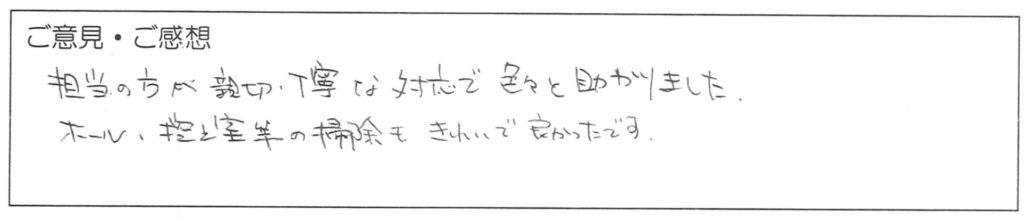 ご意見・ご感想
担当の方が親切・丁寧な対応で色々と助かりました.
ホール、控え室等の掃除もきれいで良かったです.